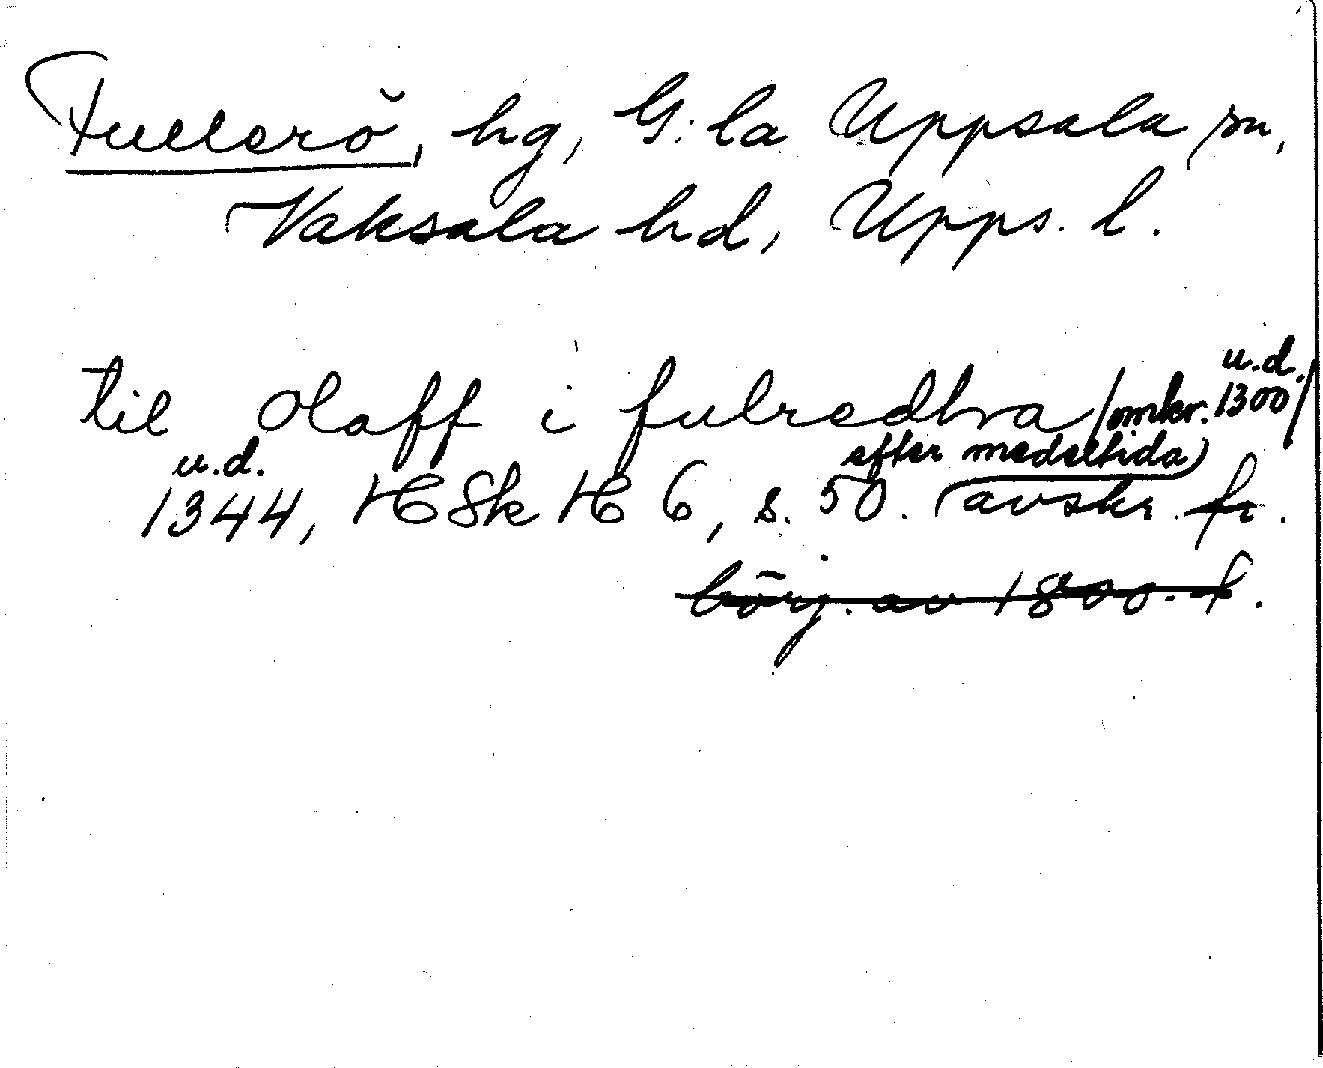 Fullerö, hg, G:la Uppsala sn,
Vaksala hd, Upps. l.
u.d.
til Olaff i fulredhra /omkr. 1300/
u.d. efter medeltida)
1344, HSk H 6, s. 50. (avskr. fr.
börj. av 1800-t.